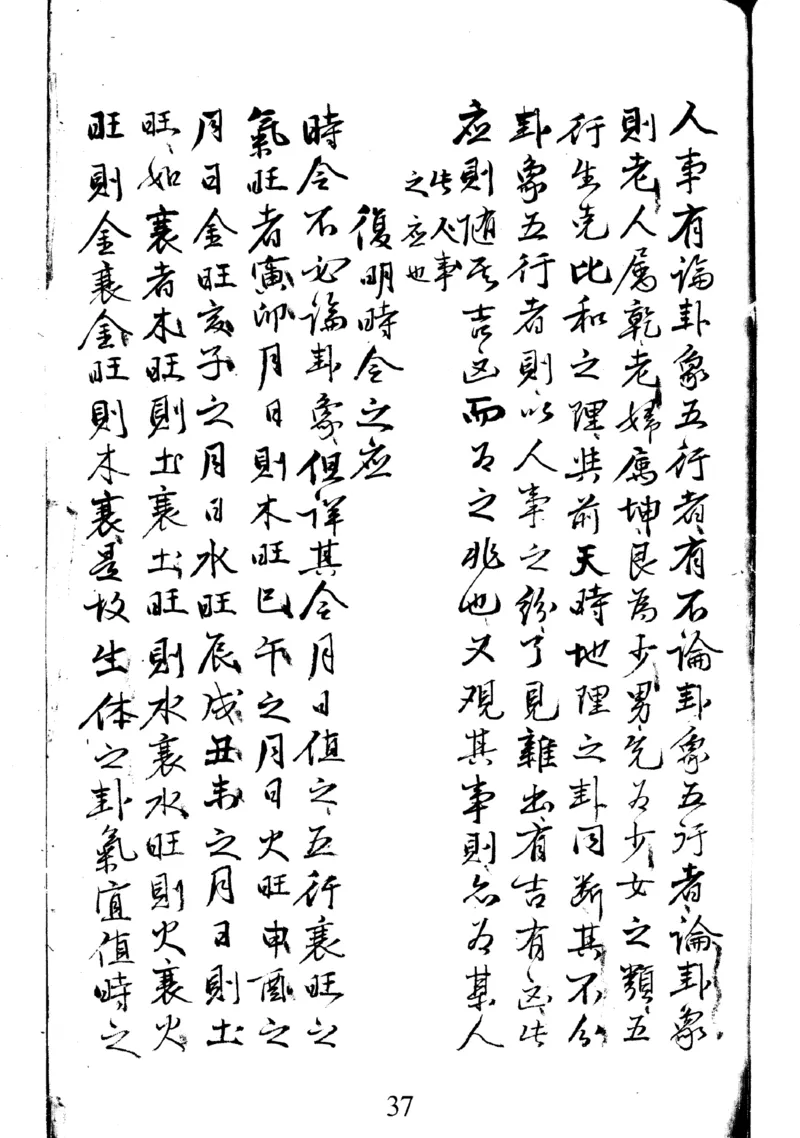 人事有論卦象五行者有不論卦象五行者論卦象
則老人屬乾老婦屬坤艮為少男兌為少女之類五
行生克比和之理与前天時地理之卦同斷其不分
卦象五行者則以人事之紛了見雜出有吉有凶此
應則随其吉凶而為之兆也又观其事則亦為某人
此人事
之應也
復明時令之應
時令不必論卦象但详其令月日值之五行衰旺之
氣旺者寅卯月日則木旺巳午之月日火旺申酉之
月日金旺亥子之月日水旺辰戌丑未之月日則土
旺如衰者木旺則土衰土旺則水衰水旺則火衰火
旺則金衰金旺則木衰是故生体之卦氣宜值時之
37